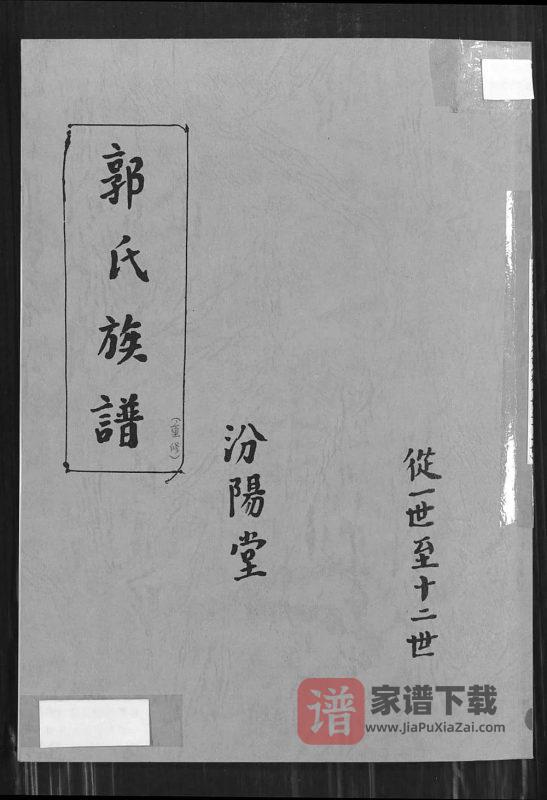 從一世至十二世
汾陽堂
郭氏族譜
（重修）
谱 家谱下载
www.JiaPuXiaZai.com